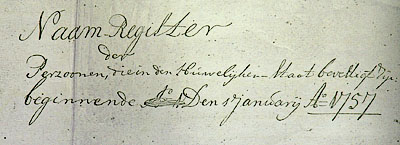 Naam-Register
der
Perzoonen, die in den Huwelijken-Staat bevestigt Zijn
beginnende Den 1e januarij Ao 1757